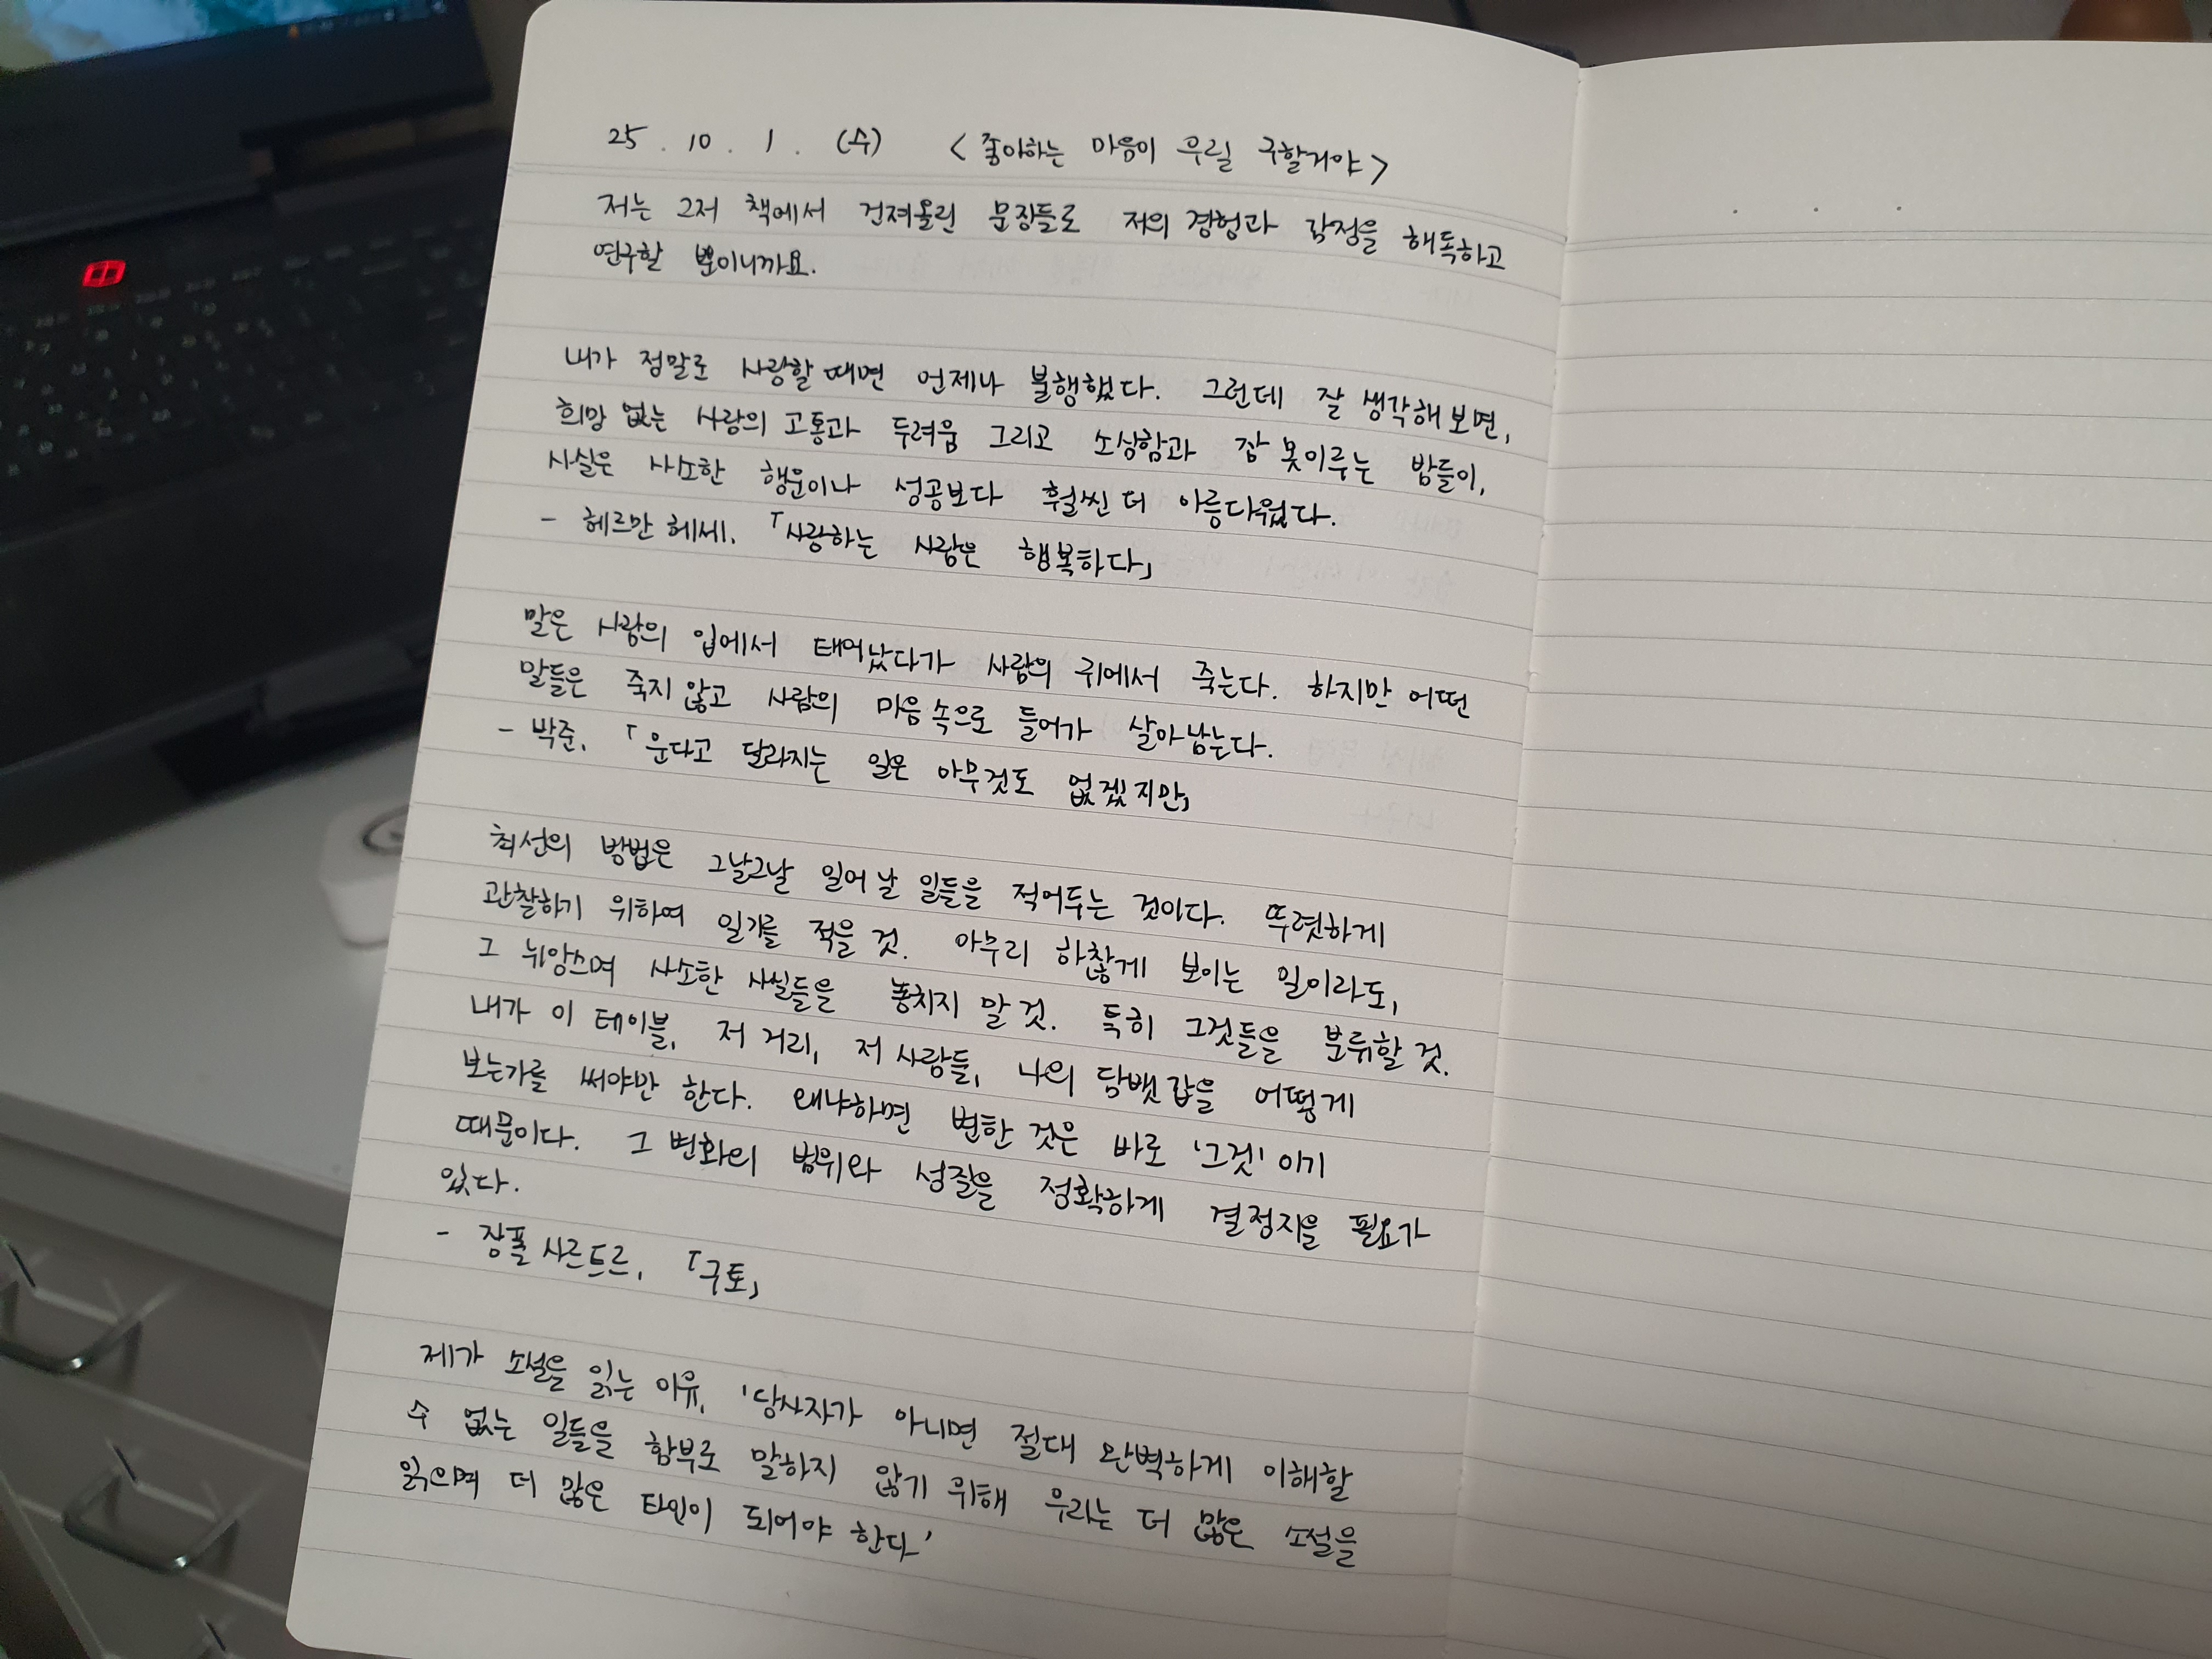 25. 10. 1. (수) <좋아하는 마음이 우릴 구할거야>
저는 그저 책에서 건져올린 문장들로 저의 경험과 감정을 해독하고
연구할 뿐이니까요.
내가 정말로 사랑할 때면 언제나 불행했다. 그런데 잘 생각해보면,
희망 없는 사랑의 고통과 두려움 그리고 소심함과 잠 못이루는 밤들이,
사실은 사소한 행운이나 성공보다 훨씬 더 아름다웠다.
- 헤르만 헤세, 「사랑하는 사람은 행복하다」
말은 사람의 입에서 태어났다가 사람의 귀에서 죽는다. 하지만 어떤
말들은 죽지 않고 사람의 마음속으로 들어가 살아남는다.
- 박준, 「운다고 달라지는 일은 아무것도 없겠지만」
최선의 방법은 그날그날 일어날 일들을 적어두는 것이다. 뚜렷하게
관찰하기 위하여 일기를 적을 것. 아무리 하찮게 보이는 일이라도,
그 뉘앙스며 사소한 사실들을 놓치지 말 것. 특히 그것들을 분류할 것.
내가 이 테이블, 저 거리, 저 사람들, 나의 담뱃갑을 어떻게
보는가를 써야만 한다. 왜냐하면 변한 것은 바로 '그것'이기
때문이다. 그 변화의 범위와 성질을 정확하게 결정지을 필요가
있다.
- 장폴 사르트르, 「구토」
제가 소설을 읽는 이유, '당사자가 아니면 절대 완벽하게 이해할
수 없는 일들을 함부로 말하지 않기 위해 우리는 더 많은 소설을
읽으며 더 많은 타인이 되어야 한다'